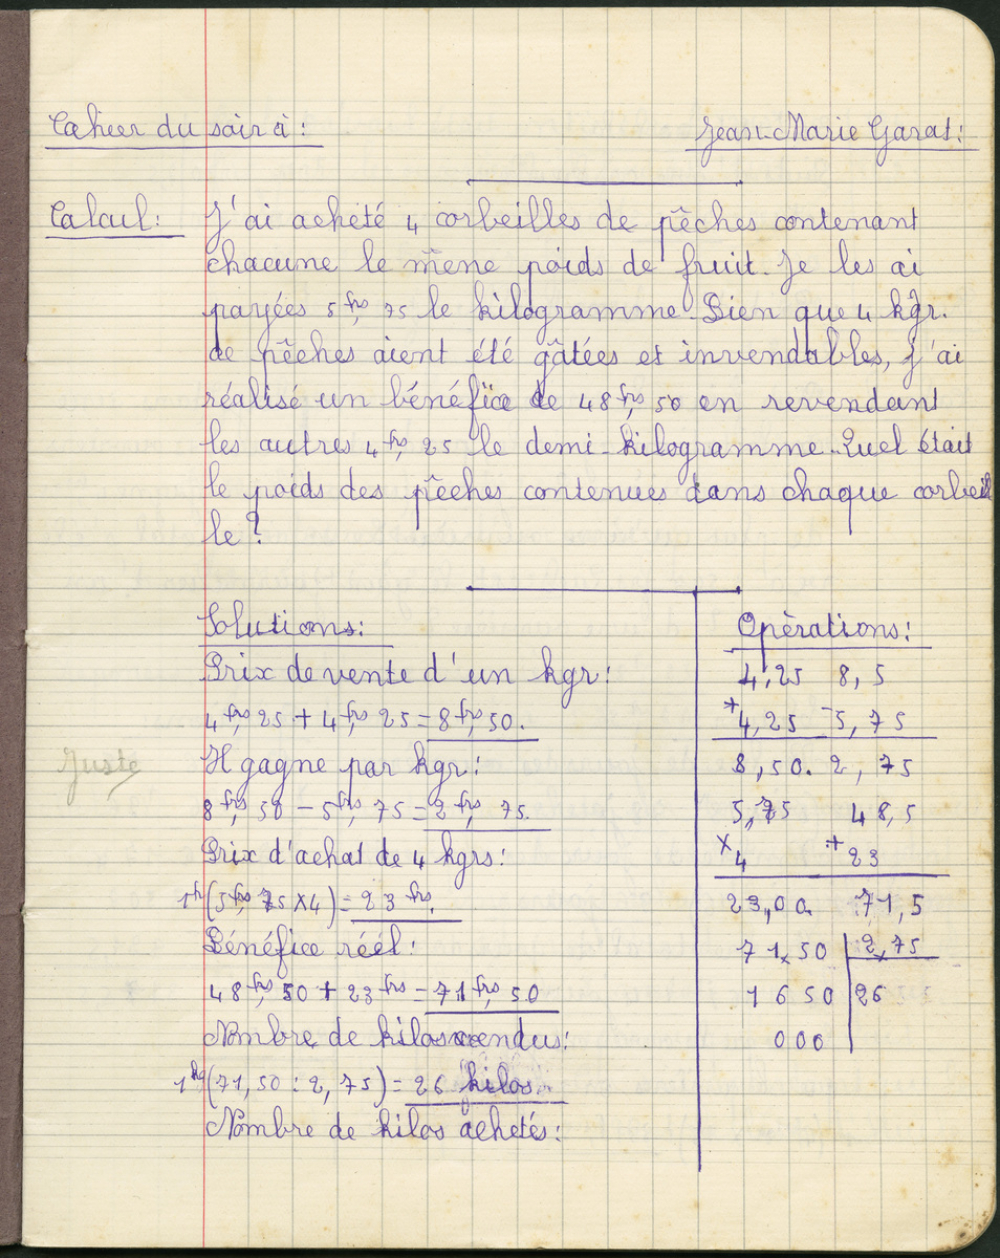 Cahier du soir à :
Jean-Marie Garat :
Calcul : J'ai acheté 4 corbeilles de pêches contenant
chacune le mêne poids de fruit. Je les ai
payées 5 frs, 75 le kilogramme. Bien que 4 kgr.
de pêches aient été gâtées et invendables, j'ai
réalisé un bénéfice de 48 frs, 50 en revendant
les autres 4 frs, 25 le demi-kilogramme. Quel était
le poids des pêches contenues dans chaque corbeil
le ?
Solutions :
Prix de vente d'un kgr :
4 frs, 25 + 4 frs, 25 = 8 frs, 50.
Il gagne par kgr :
Juste
8 frs, 50 - 5 frs, 75 = 2 frs, 75.
Prix d'achat de 4 kgrs :
1 fr (5 frs, 75 x 4) = 23 frs.
Bénéfice réel :
48 frs, 50 + 23 frs = 71 frs, 50
Nombre de kilos vendus :
1 kg (71, 50 : 2, 75) = 26 kilos.
Nombre de kilos achetés :
Opèrations :
4,25 8,5
+4,25 -5,75
8,50. 2,75
5,75 48,5
x4 +23
23,00. 71,5
71,50 2,75
1650 26
000